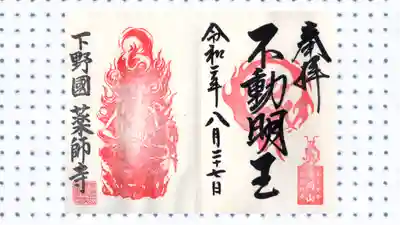 奉拝
不動明王
令和二年八月二十七日
下野國 薬師寺